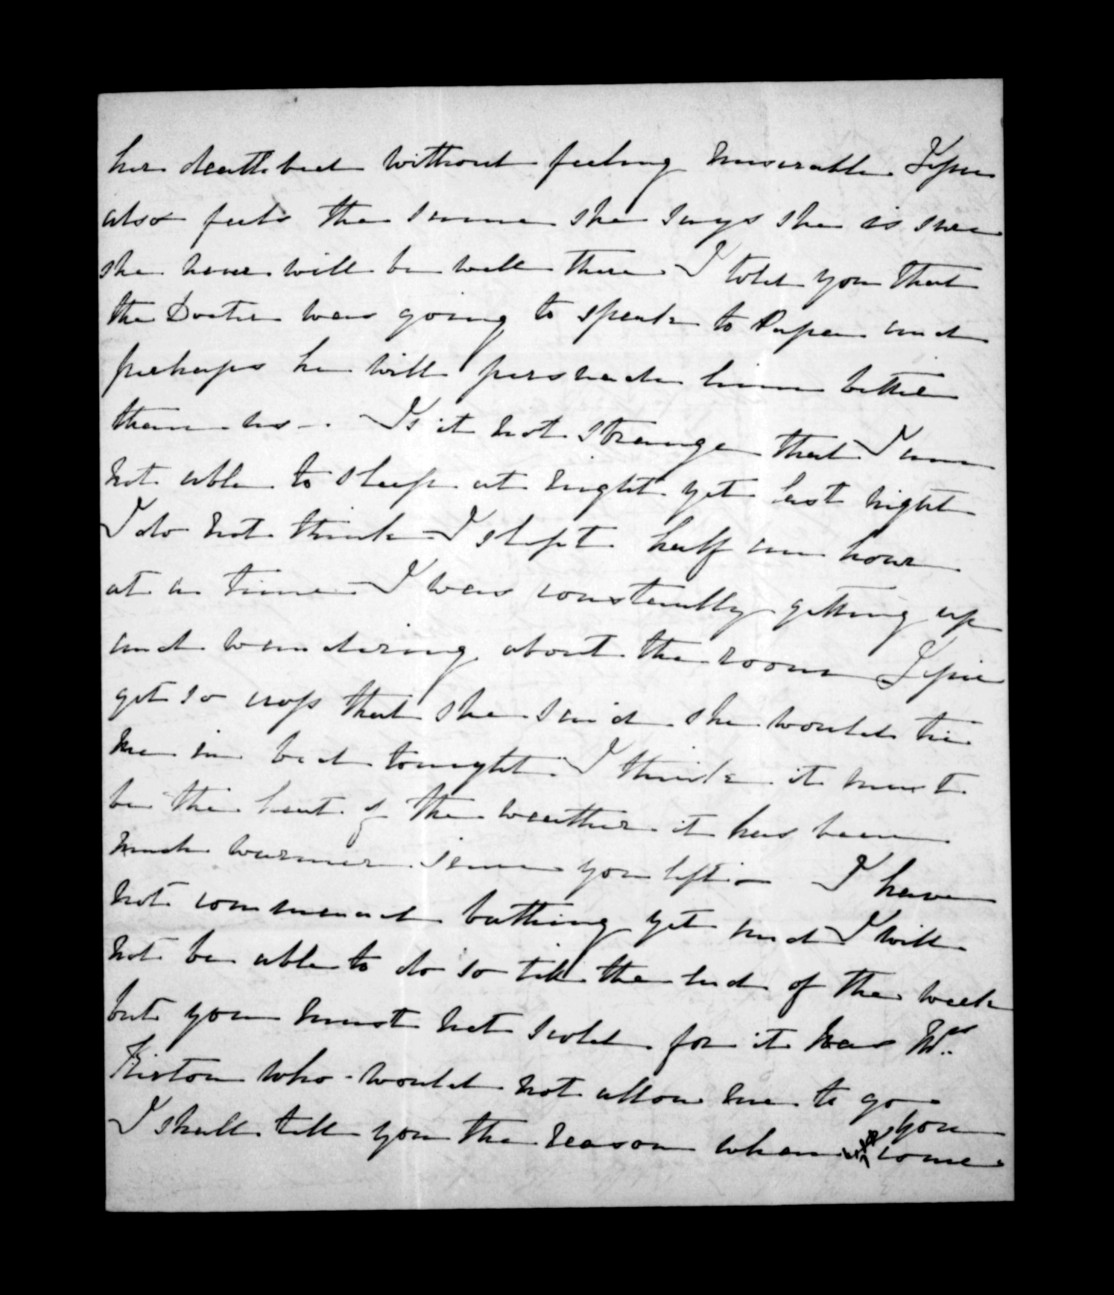 her deathbed without feeling miserable. Tipie
also feels the same she says she is sure
she never will be well there. I told you that
the Doctor was going to speak to Papa and
perhaps he will persuade him better
than us -. Is it not strange that I am
not able to sleep at night yet last night
I do not think I slept half an hour
at a time I was constantly getting up
and wandering about the room Tipie
got so cross that she said she would tie
me in bed tonight. I think it must
be the heat of the weather it has been
much warmer since you left - I have
not commenced bathing yet and I will
not be able to do so till the end of the week
but you must not scold for it was Mrs.
who would not allow me to go
I shall tell you the reason when you come